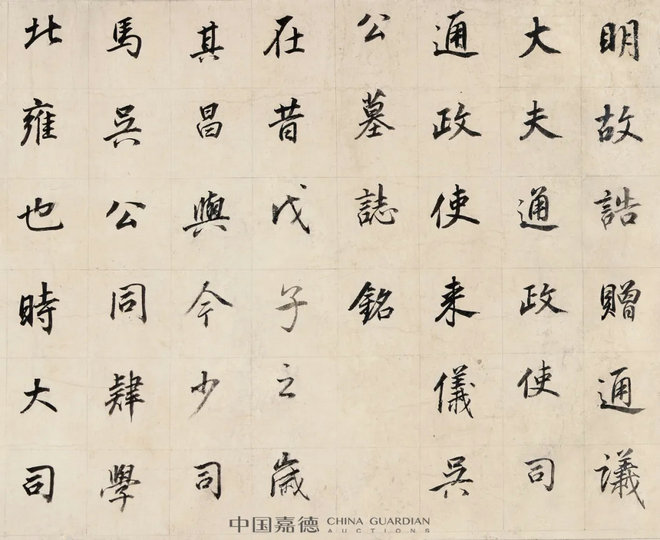 明故誥贈通議
大夫通政使司
通政使来儀吳
公墓誌銘
在昔戊子之歲
其昌與今少司
馬吳公同肄學
北雍也時大司
中国嘉德 CHINA GUARDIAN
AUCTIONS